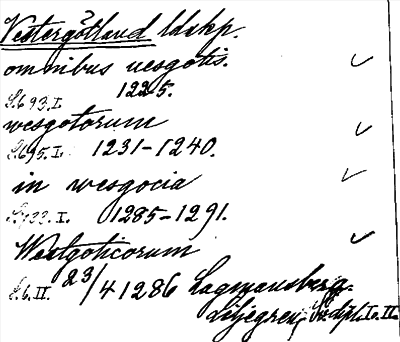 Vestergötland ldskp.
omnibus uesgotis.
S.693.I. 1225.
wesgotorum
S.695.I. 1231-1240.
in wesgocia
733.I. 1285-1291.
Westgoticorum
S.6.II. 23/4 1286 Lagmansberga.
Liljegren, Sv. dipl. I o. II.